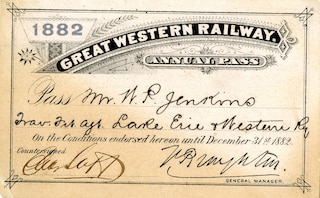 1882
GREAT WESTERN RAILWAY.
ANNUAL PASS
Pass Mr. W. P. Jenkins
Trav. Frt agt. Lake Erie & Western Ry
On the Conditions endorsed hereon until December 31st 1882.
Countersigned
GENERAL MANAGER.